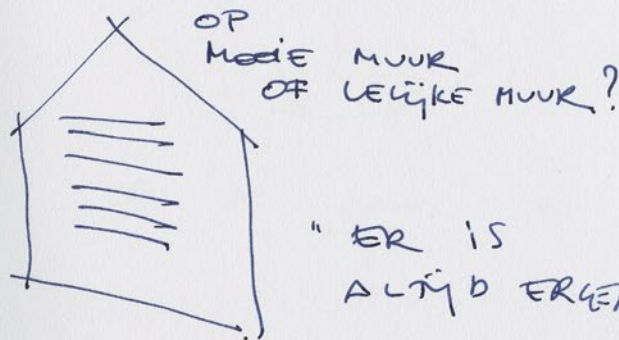 OP
MOOIE MUUR
OF LELIJKE MUUR?
" ER IS
ALTIJD